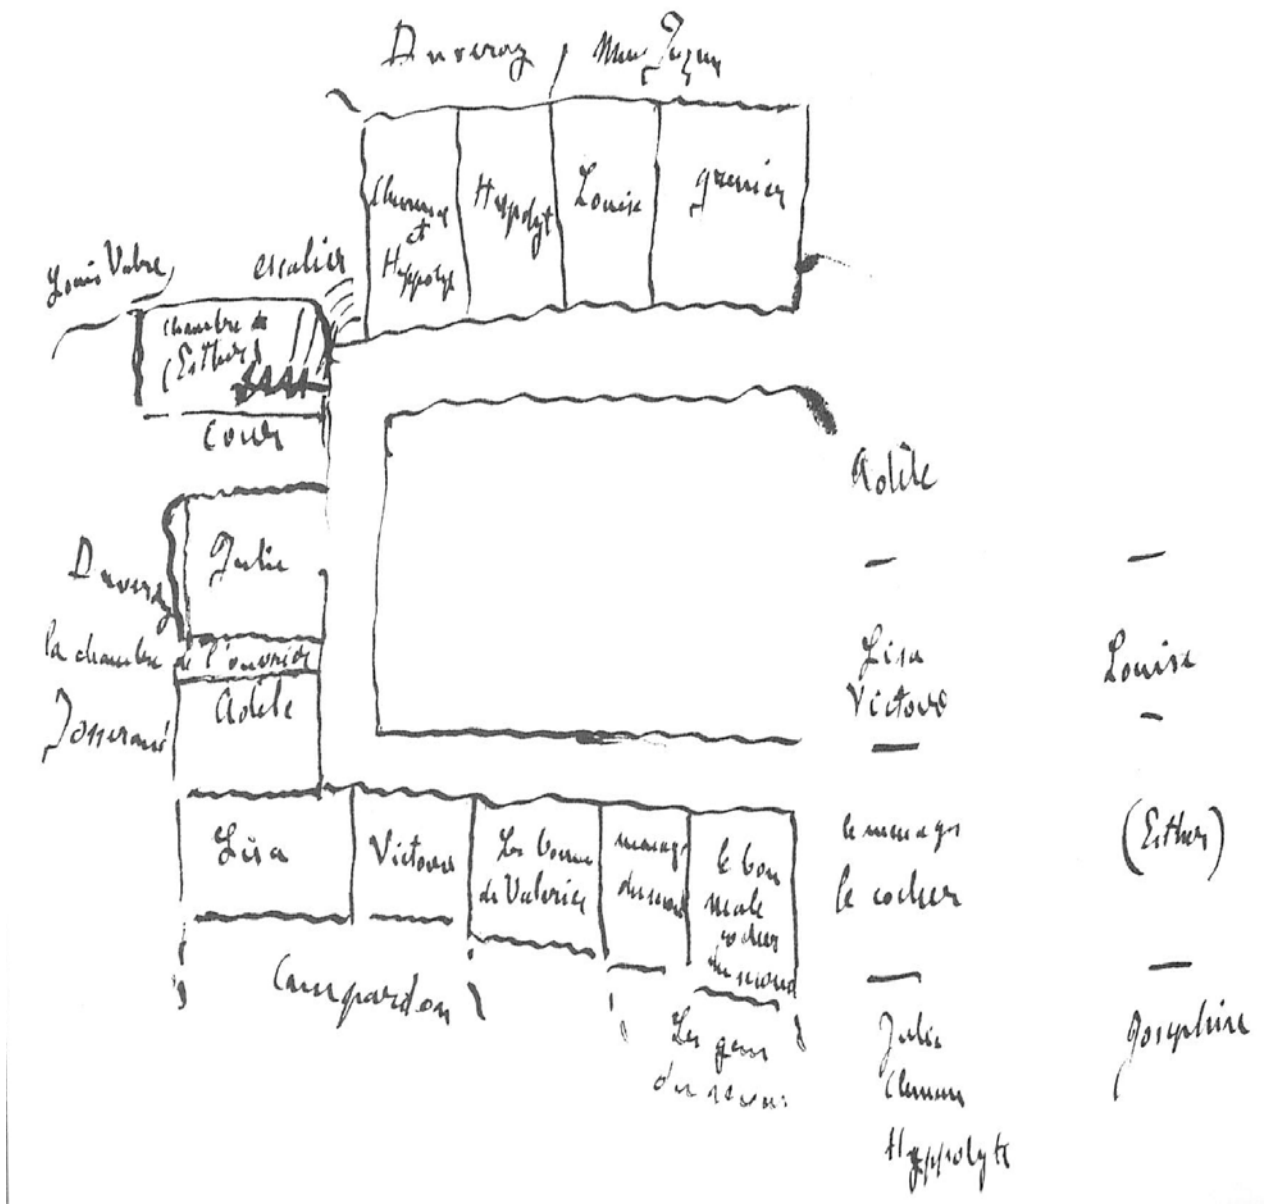 Duveroy
Mme Juzeur
Clémence
et
Hippolyte
Hyppolyt
Louise
grenier
Louis Vabre
escalier
chambre de
(Esther)
cour
Duveroy
Julie
la chambre de l'ouvrière
Josserand
Adèle
Lisa
Victoire
La bonne
de Valérie
ménage
du second
le bon
cocher
du second
Campardon
Les gens
du second
Adèle
—
Lisa
Victoire
—
le ménage
le cocher
—
Julie
Clémence
Hyppolyte
—
Louise
—
(Esther)
—
Joséphine